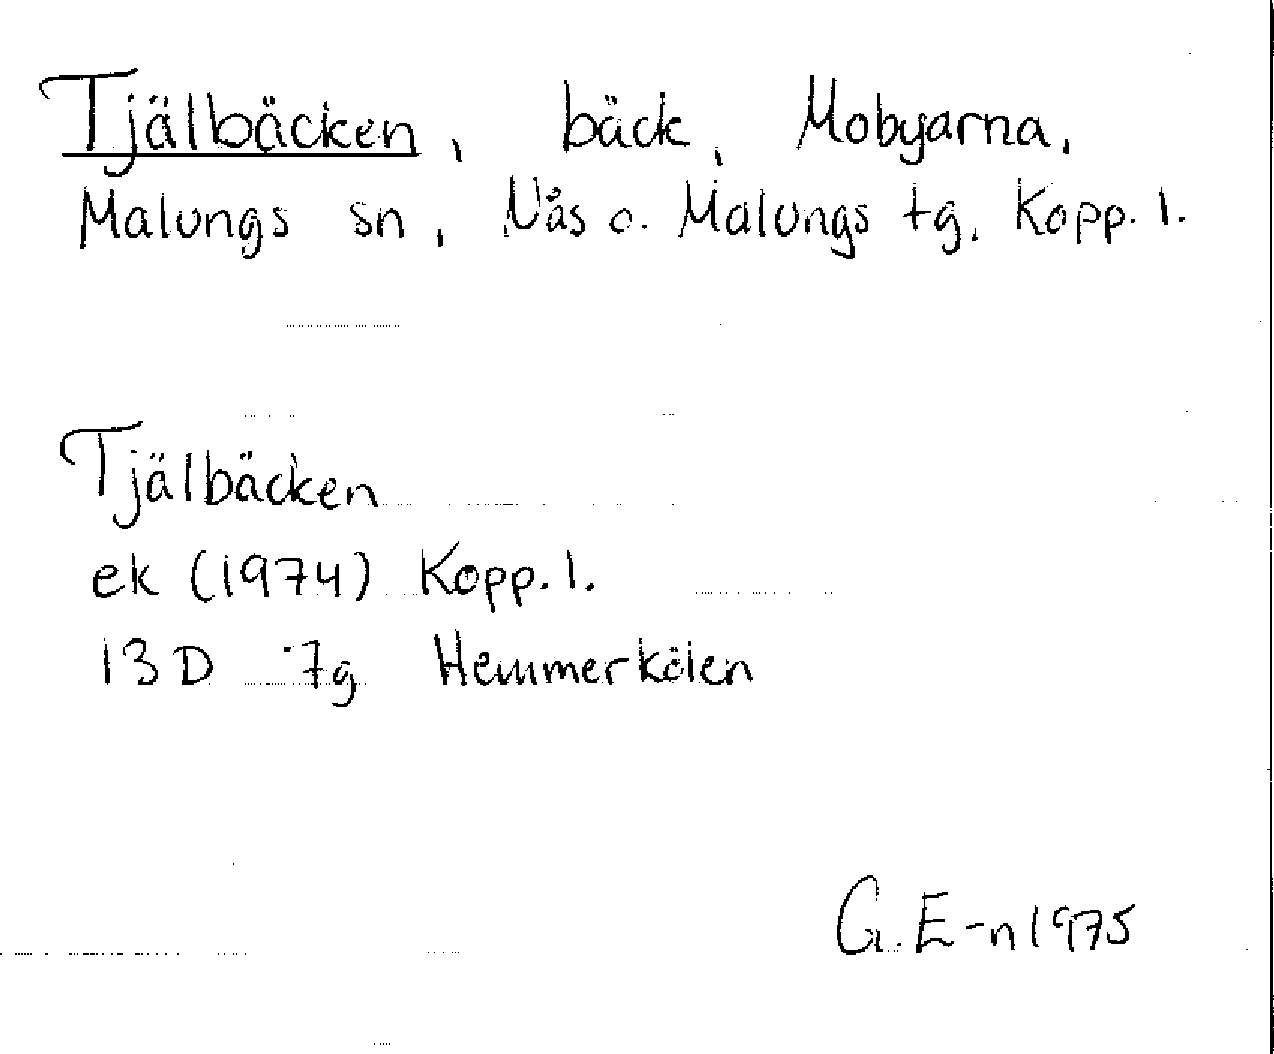 Tjälbäcken, bäck, Mobyarna,
Malungs sn, Nås o. Malungs tg, Kopp. l.
Tjälbäcken
ek (1974) Kopp. l.
13 D 7g Hemmerkölen
G. E-n 1975